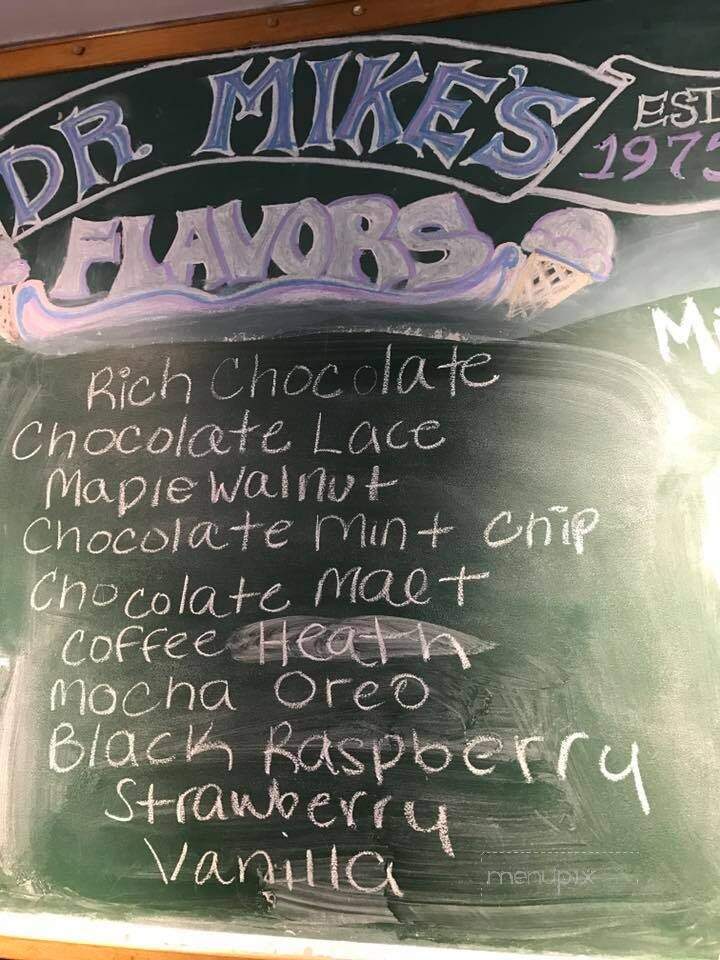 DR. MIKE'S
EST
1975
FLAVORS
Rich Chocolate
Chocolate Lace
Maple Walnut
Chocolate Mint Chip
Chocolate Malt
Coffee Heath
Mocha Oreo
Black Raspberry
Strawberry
Vanilla
menupix